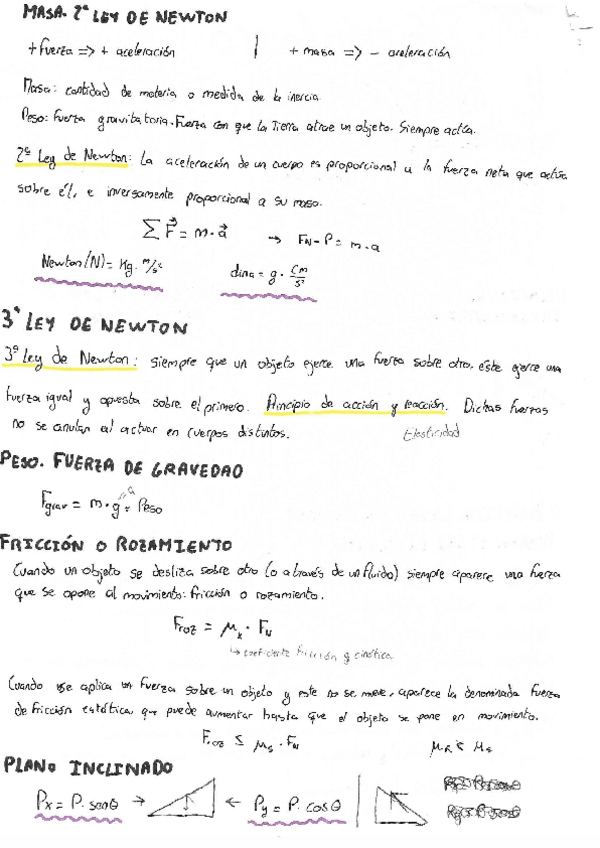 MASA. 2ª LEY DE NEWTON
+ fuerza => + aceleración | + masa => - aceleración
Masa: cantidad de materia o medida de la inercia.
Peso: fuerza gravitatoria. Fuerza con que la Tierra atrae un objeto. Siempre actúa.
2ª Ley de Newton: La aceleración de un cuerpo es proporcional a la fuerza neta que actúa
sobre él, e inversamente proporcional a su masa.
∑F⃗ = m·a⃗ → FN - P = m·a
Newton (N) = Kg · m/s² dina = g · cm/s²
3ª LEY DE NEWTON
3ª Ley de Newton: siempre que un objeto ejerce una fuerza sobre otro, éste ejerce una
fuerza igual y opuesta sobre el primero. Principio de acción y reacción. Dichas fuerzas
no se anulan al actuar en cuerpos distintos. Elasticidad
PESO. FUERZA DE GRAVEDAD
Fgrav = m·g = Peso
"a
FRICCIÓN O ROZAMIENTO
Cuando un objeto se desliza sobre otro (o a través de un fluido) siempre aparece una fuerza
que se opone al movimiento: fricción o rozamiento.
Froz = μk · FN
↳ coeficiente fricción y cinética
Cuando se aplica un fuerza sobre un objeto y este no se mueve, aparece la denominada fuerza
de fricción estática que puede aumentar hasta que el objeto se pone en movimiento.
Froz ≤ μs · FN μk < μs
PLANO INCLINADO
Px = P · senθ → ← Py = P · cosθ